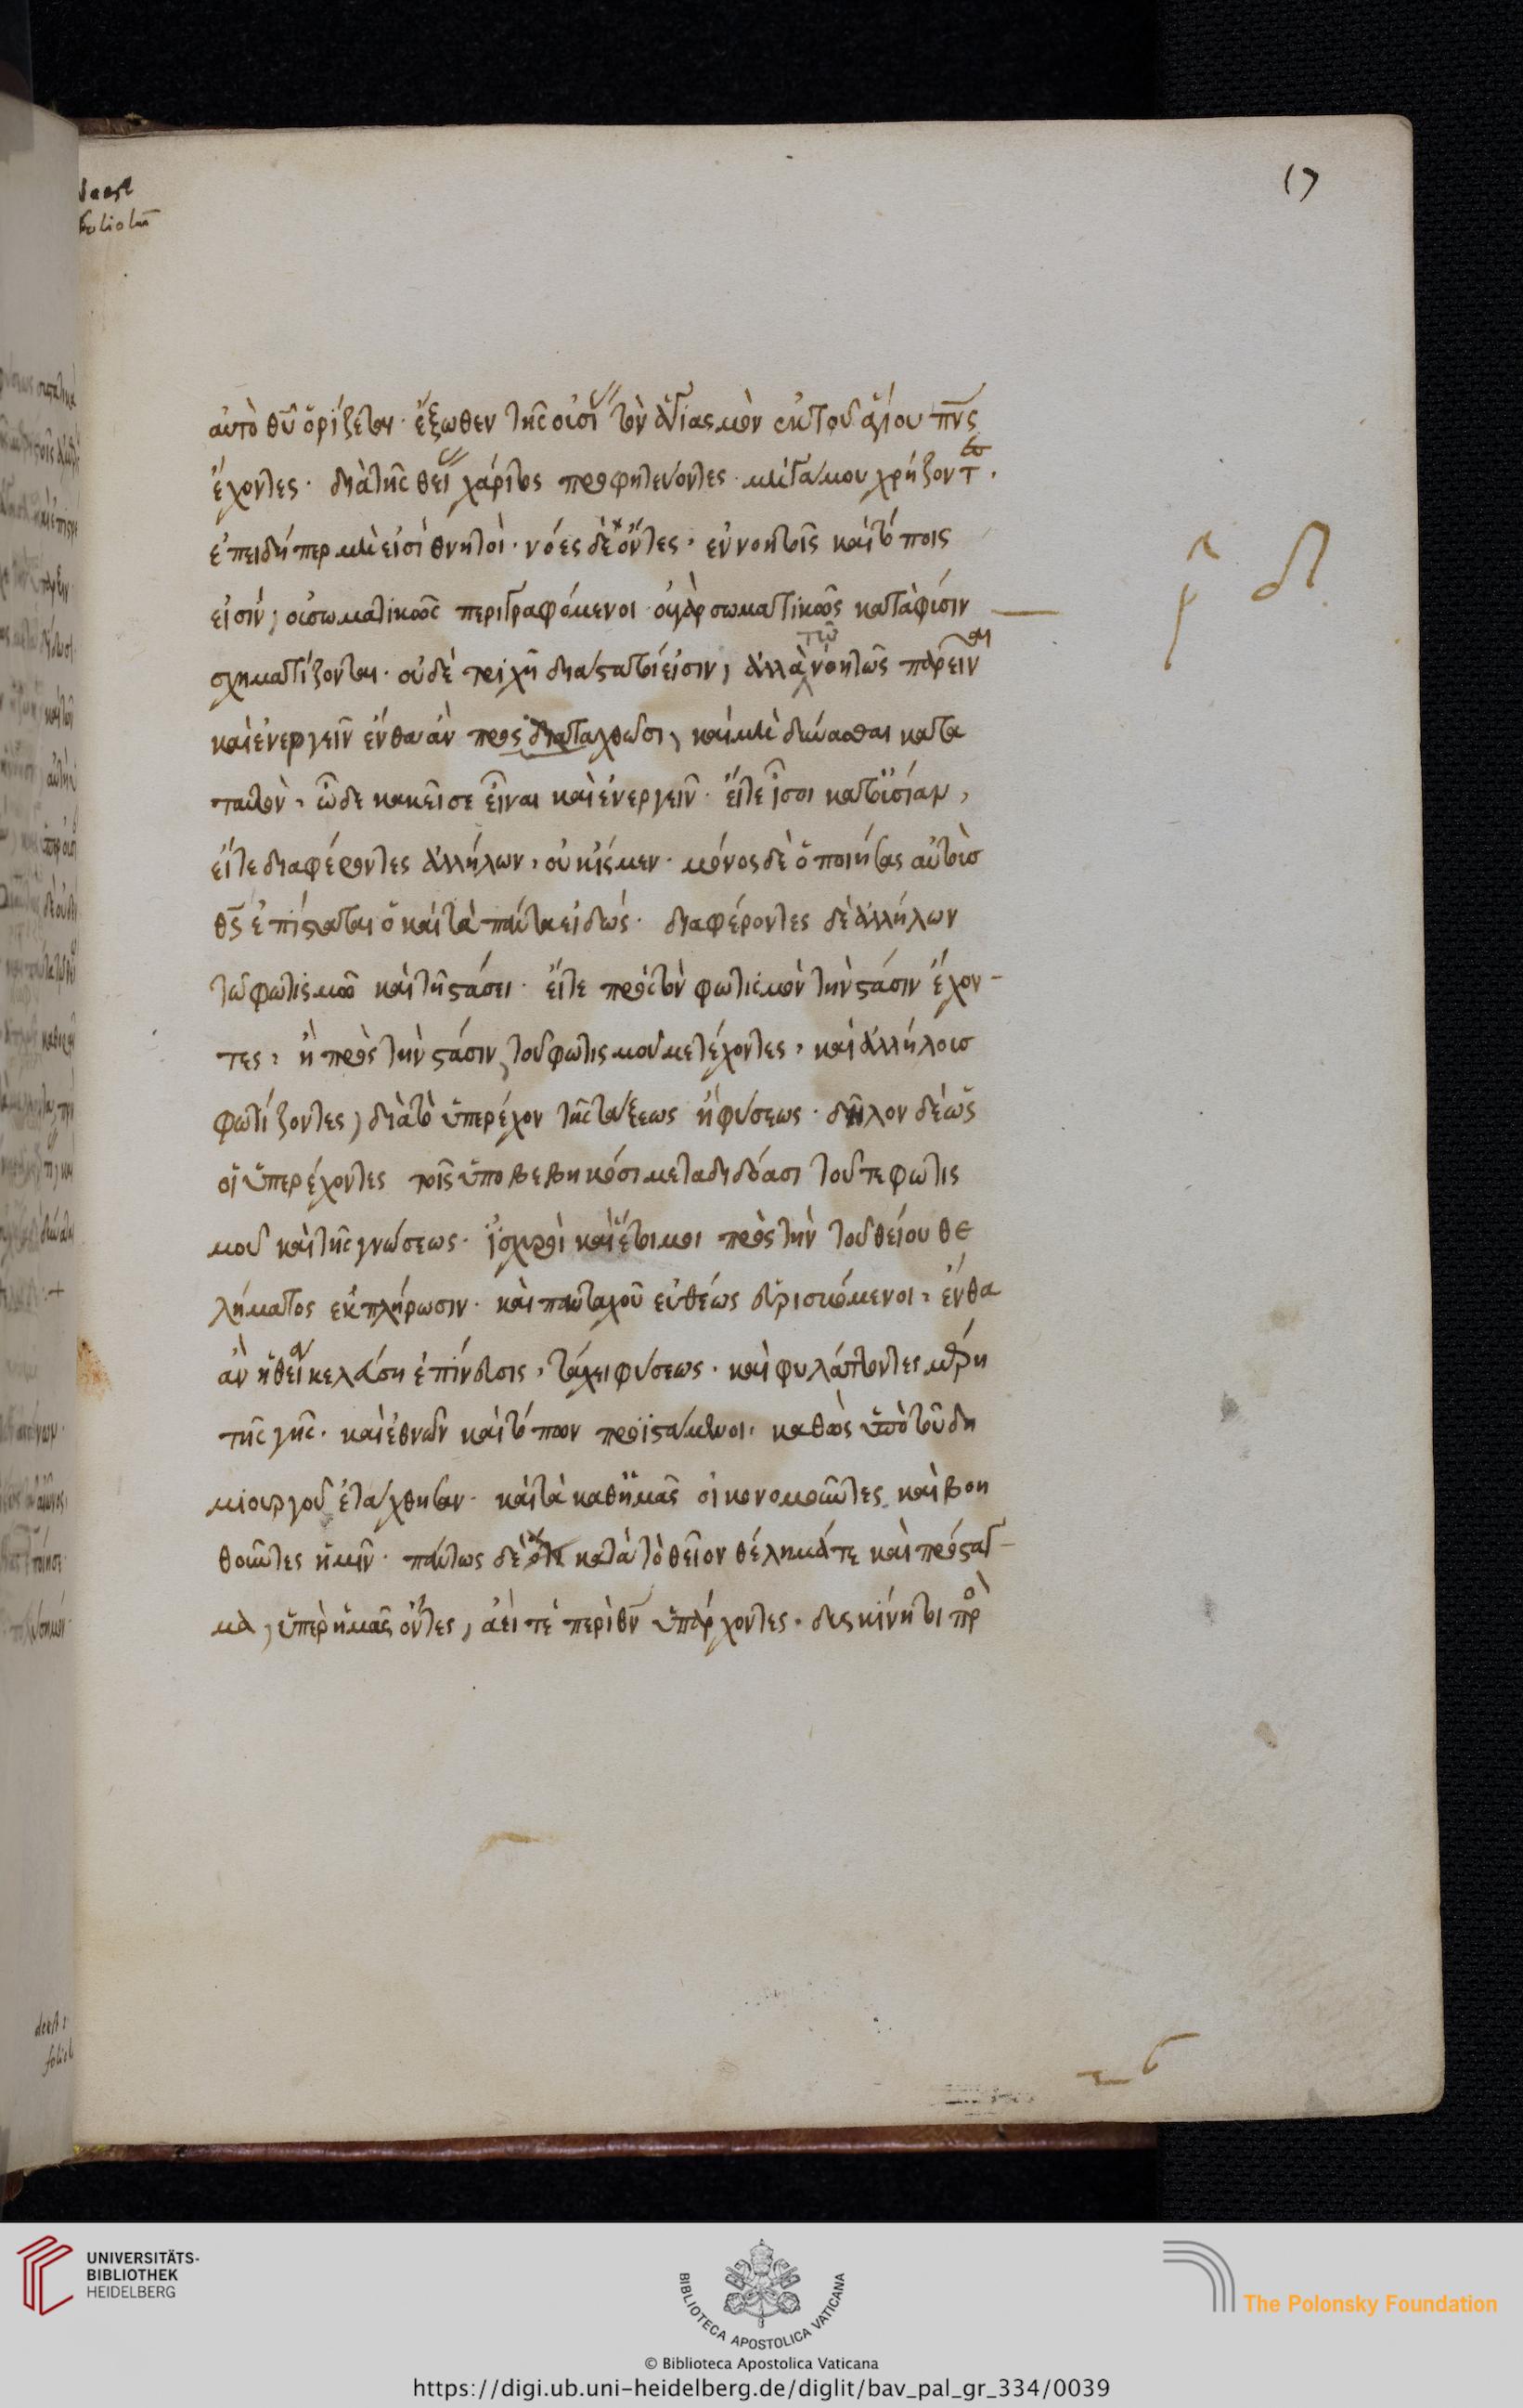 17
αὐτὸ θῦ ὁρίζεται· ἔξωθεν τῆς οὐσί τὸν ἁγιασμὸν ἐκ τοῦ ἁγίου πν̅ς
ἔχοντες· διὰ τῆς θεί χάριτος προφητεύοντες· μὴ γάμου χρήζοντ τ.
ἐπειδήπερ μὴ εἰσὶ θνητοὶ· νόες δὲ ὄντες· ἐν νοητοῖς καὶ τόποις
εἰσίν, οὐ σωματικῶς περιγραφόμενοι· οὐ γὰρ σωματικῶς κατὰ φύσιν
σχηματίζονται· οὐδὲ τριχῆ διαστατοί εἰσιν, ἀλλὰ τῶ νοητῶς παρεῖν
καὶ ἐνεργεῖν ἔνθα ἂν προς διαταχθῶσι, καὶ μὴ δύνασθαι κατα
ταυτὸν, ὧδε κακεῖσε εἶναι καὶ ἐνεργεῖν· εἴτε ἶσοι κατ οὐσίαν,
εἴτε διαφέροντες ἀλλήλων, οὐκ ἴσμεν· μόνος δὲ ὁ ποιήσας αὐτοὺσ
θς̅ ἐπίσταται ὁ καὶ τὰ πάντα εἰδώς· διαφέροντες δὲ ἀλλήλων
τῶ φωτισμῶ καὶ τῆ στάσει· εἴτε πρὸς τὸν φωτισμὸν τὴν στάσιν ἔχον-
τες, ἢ πρὸς τὴν στάσιν, τοῦ φωτισμοῦ μετέχοντες, καὶ ἀλλήλοισ
φωτίζοντες, διὰ τὸ ὑπερέχον τῆς τάξεως ἢ φύσεως· δῆλον δὲ ὡς
οἱ ὑπερέχοντες τοῖς ὑποβεβηκόσι μεταδιδόασι τοῦ τε φωτισ
μοῦ καὶ τῆς γνώσεως· ἰσχυροὶ καὶ ἕτοιμοι πρὸς τὴν τοῦ θείου θε
λήματος ἐκπλήρωσιν· καὶ πανταχοῦ εὐθέως εὑρισκόμενοι, ἔνθα
ἂν ἡ θεία κελεύση ἐπίνευσις, τάχει φύσεως· καὶ φυλάττοντες μέρη
τῆς γῆς· καὶ ἐθνῶν καὶ τόπων προϊστάμενοι, καθὼς ὑπὸ τοῦ δη
μιουργοῦ ἐτάχθησαν· καὶ τὰ καθ ἡμᾶς οἰκονομοῦντες, καὶ βοη
θοῦντες ἡμῖν· πάντως δὲ ὅτι κατὰ τὸ θεῖον θέλημά τε καὶ πρόσταγ-
μα, ὑπὲρ ἡμᾶς ὄντες, ἀεί τε περὶ θν̅ ὑπάρχοντες· δυσκίνητοι πρ
UNIVERSITÄTS-
BIBLIOTHEK
HEIDELBERG
BIBLIOTECA APOSTOLICA VATICANA
The Polonsky Foundation
© Biblioteca Apostolica Vaticana
https://digi.ub.uni-heidelberg.de/diglit/bav_pal_gr_334/0039